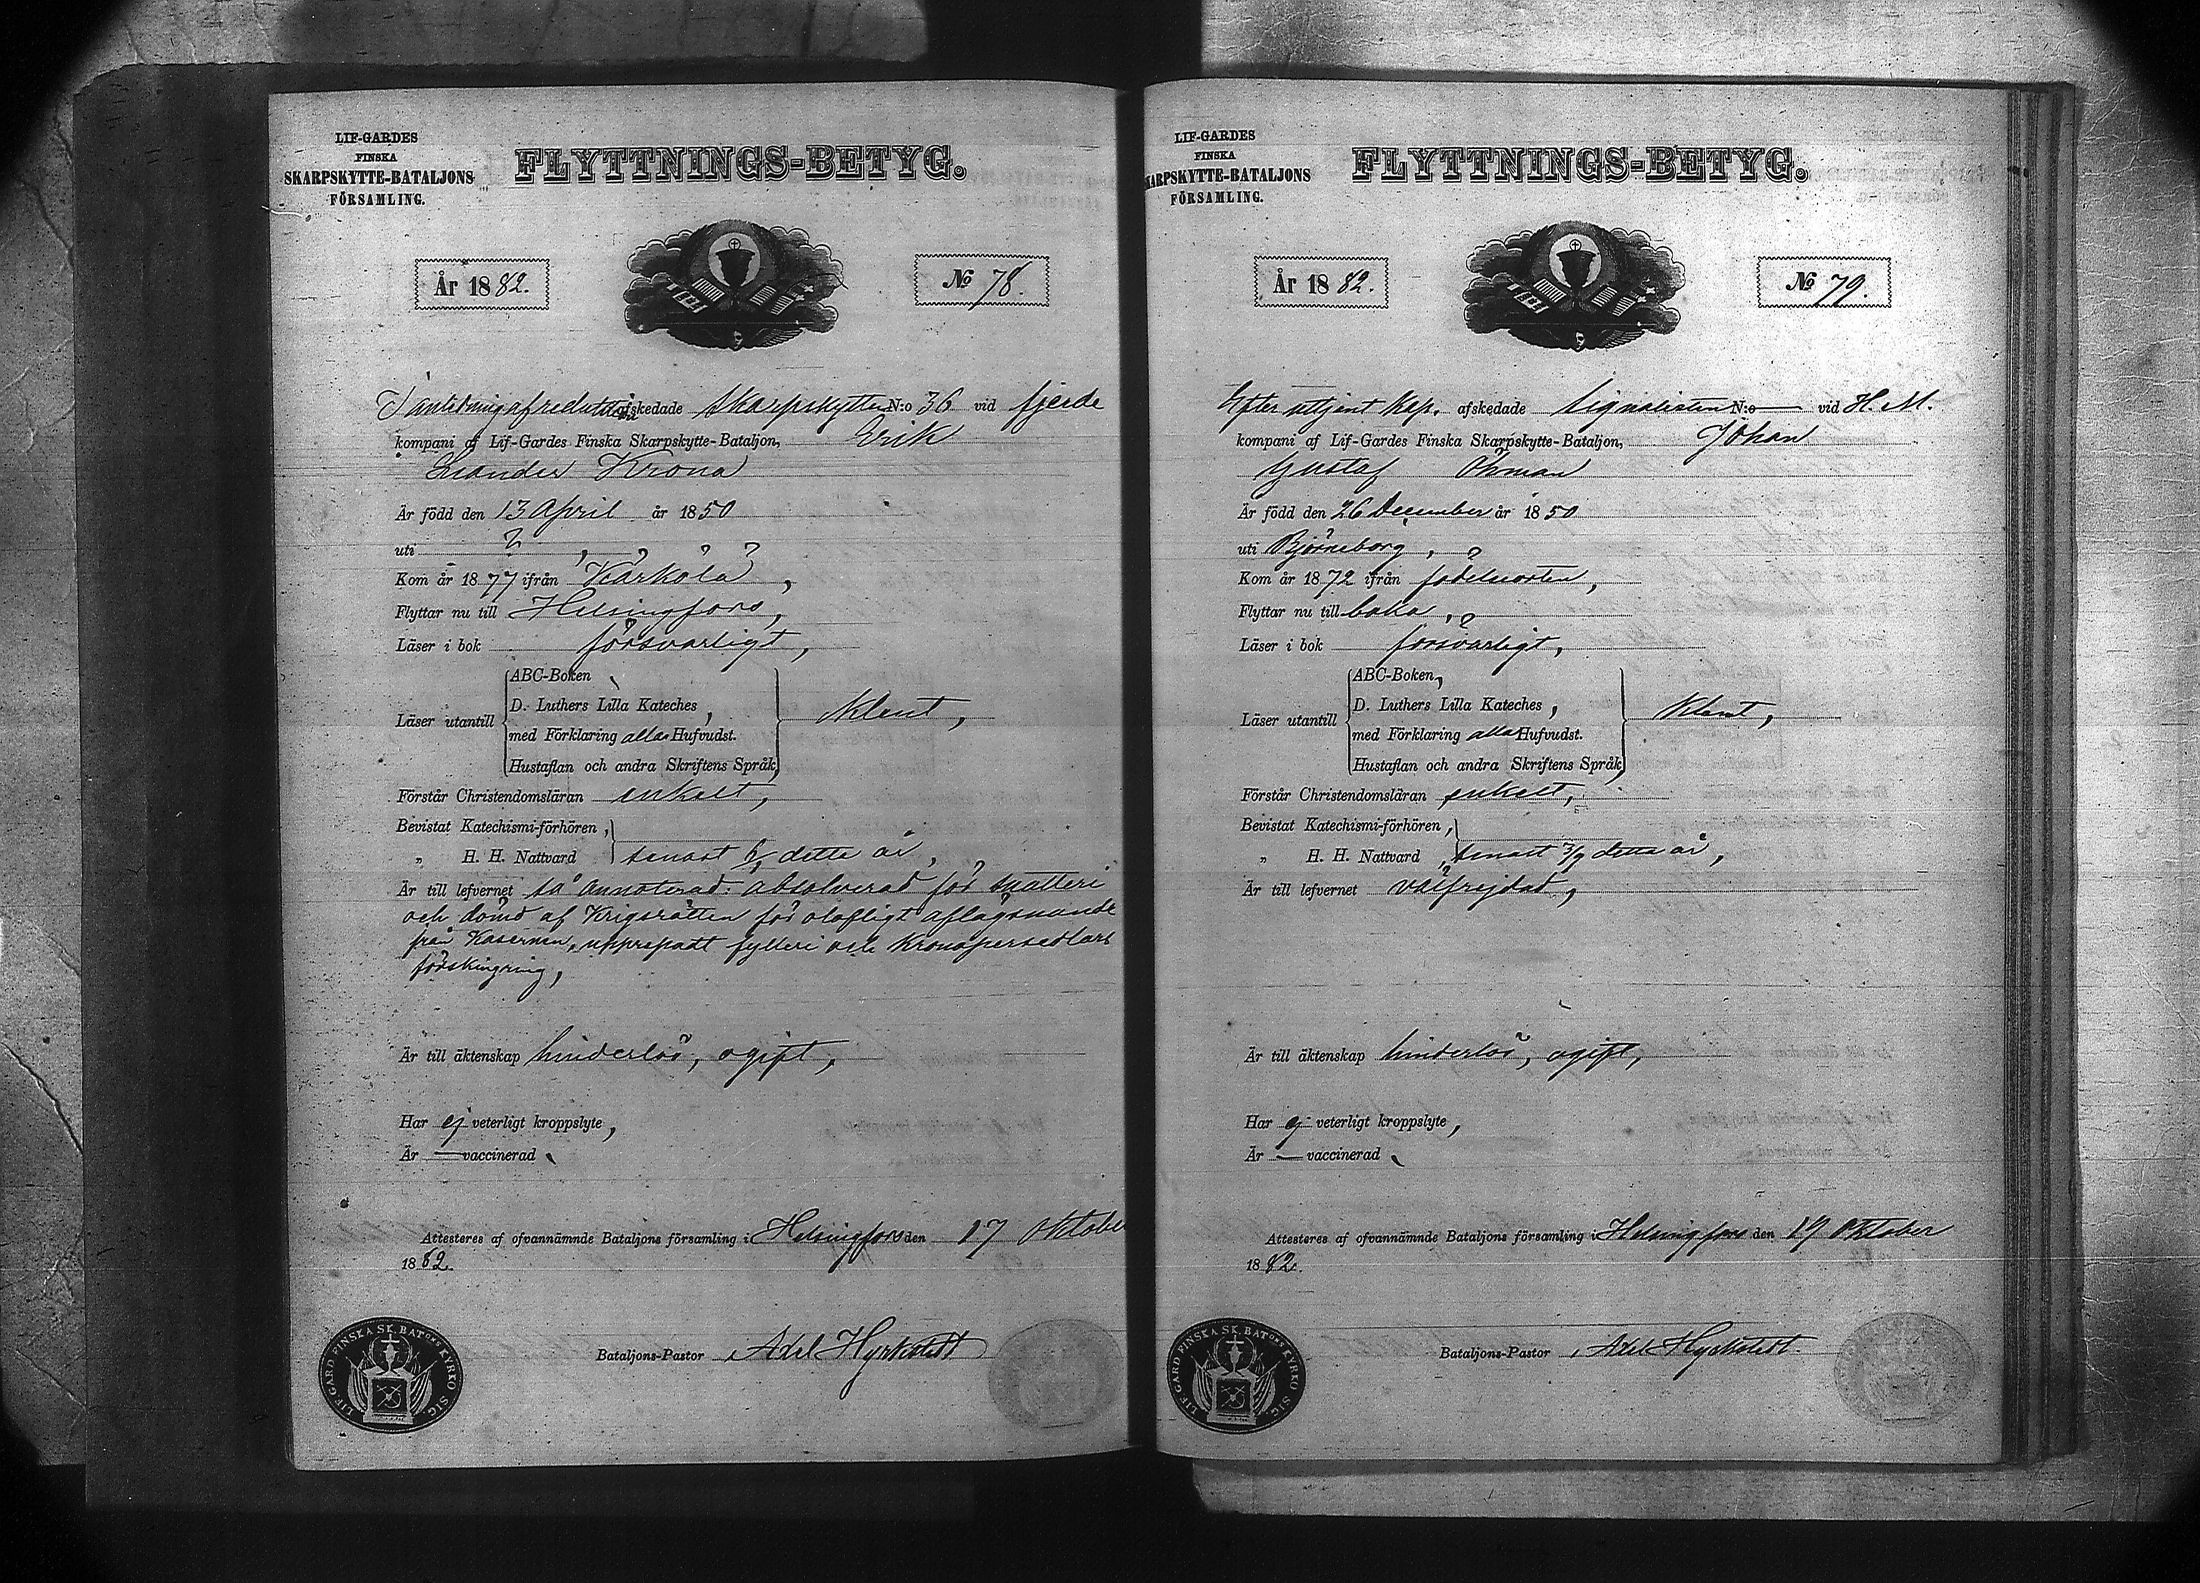 LIF-GARDES
FINSKA
SKARPSKYTTE-BATALJONS
FÖRSAMLING.
FLYTTNINGS-BETYG.
År 1882.
No 78.
I anledning af reduktion afskedade Skarpskytten N:o 36 vid fjerde
kompani af Lif-Gardes Finska Skarpskytte-Bataljon, Erik
Leander Krona
Är född den 13 April år 1850
uti ? ,
Kom år 1877 ifrån Kärkölä,
Flyttar nu till Helsingfors,
Läser i bok försvarligt,
Läser utantill
ABC-Boken,
D. Luthers Lilla Kateches,
med Förklaring allas Hufvudst.
Hustaflan och andra Skriftens Språk,
Klent,
Förstår Christendomsläran enkelt,
Bevistat Katechismi-förhören,
„ H. H. Nattvard senast dette år,
Är till lefvernet så annoterad: absolverad för snatteri
och dömd af Krigsrätten för olofligt aflägsnande
från Kasernen, upprepadt fylleri och Kronopersedlars
förskingring,
Är till äktenskap hinderlös, ogift,
Har ej veterligt kroppslyte,
Är — vaccinerad,
Attesteres af ofvannämnde Bataljons församling i Helsingfors den 17 Oktober
1882.
Bataljons-Pastor, Axel Hyrkstedt
LIF. GARD FINSKA SK. BATONS KYRKO SIG.
LIF-GARDES
FINSKA
SKARPSKYTTE-BATALJONS
FÖRSAMLING.
FLYTTNINGS-BETYG.
År 1882.
No 79.
Efter utjent Kap. afskedade Signalisten N:o — vid H. M.
kompani af Lif-Gardes Finska Skarpskytte-Bataljon, Johan
Gustaf Öhman
Är född den 26 December år 1850
uti Björneborg,
Kom år 1872 ifrån födelseorten,
Flyttar nu till baka,
Läser i bok försvarligt,
Läser utantill
ABC-Boken,
D. Luthers Lilla Kateches,
med Förklaring allas Hufvudst.
Hustaflan och andra Skriftens Språk,
Klent,
Förstår Christendomsläran enkelt,
Bevistat Katechismi-förhören,
„ H. H. Nattvard, senast 3/9 detta år,
Är till lefvernet välfrejdad,
Är till äktenskap hinderlös, ogift,
Har ej veterligt kroppslyte,
Är — vaccinerad,
Attesteres af ofvannämnde Bataljons församling i Helsingfors den 19 Oktober
1882.
Bataljons-Pastor, Axel Hyrkstedt.
LIF. GARD FINSKA SK. BATONS KYRKO SIG.